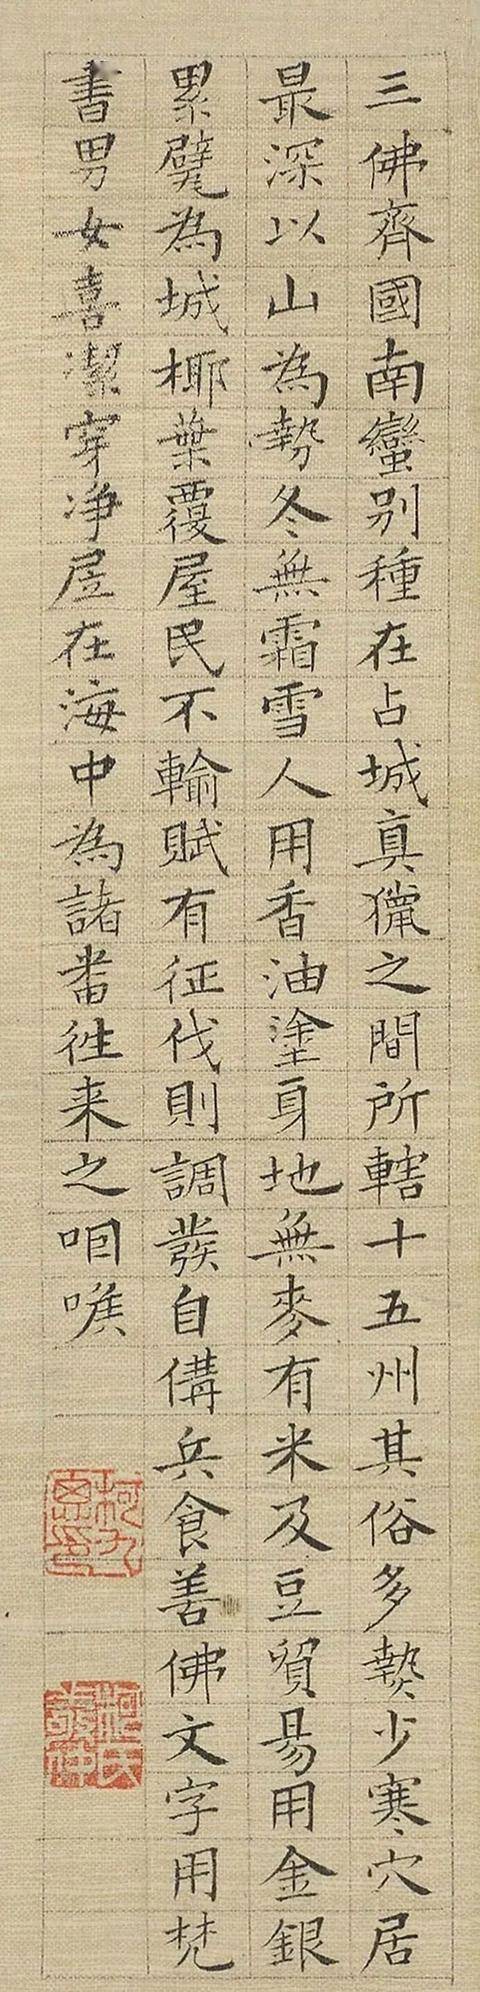 三佛齊國南蠻別種在占城真獵之間所轄十五州其俗多𤍠少寒穴居
最深以山為勢冬無霜雪人用香油塗身地無麥有米及豆貿易用金銀
累甓為城椰葉覆屋民不輸賦有征伐則調發自備兵食善佛文字用梵
書男女喜潔穿淨屋在海中為諸番往来之咽喉
柯九思印
柯氏敬仲